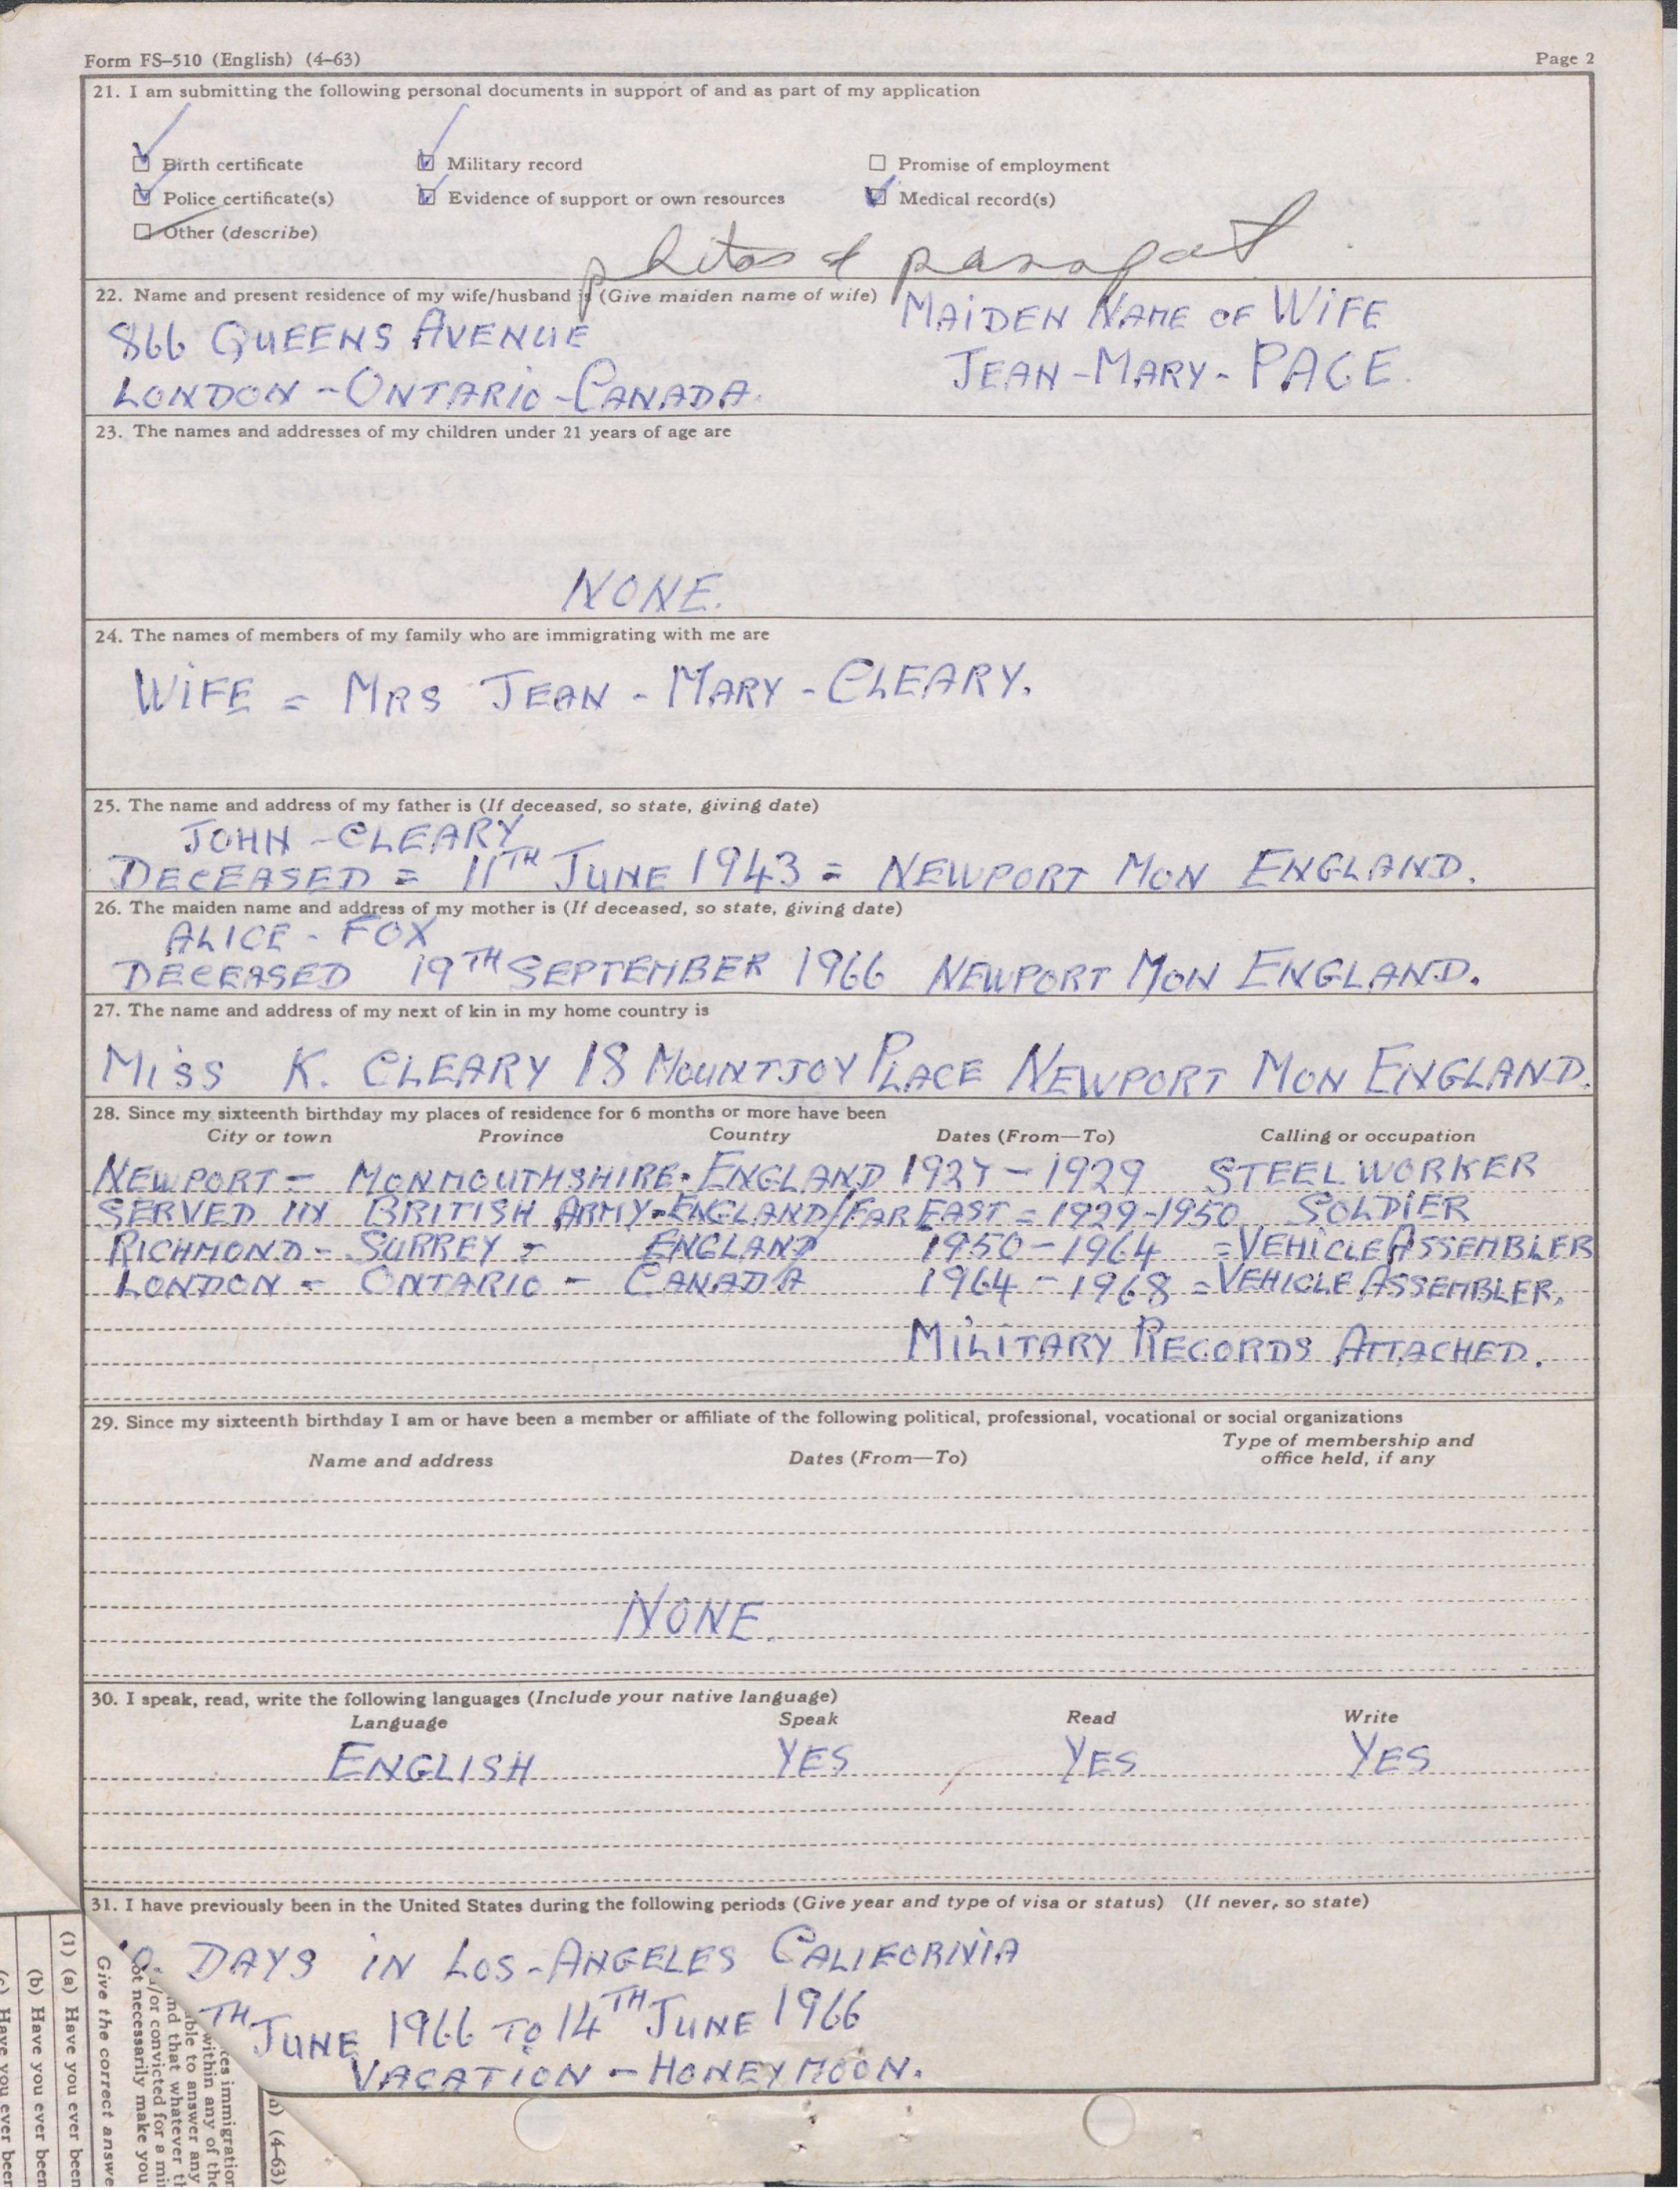 Form FS-510 (English) (4-63)
Page 2
21. I am submitting the following personal documents in support of and as part of my application
Birth certificate
Military record
Promise of employment
Police certificate(s)
Evidence of support or own resources
Medical record(s)
Other (describe)
photos &
22. Name and present residence of my wife/husband is (Give maiden name of wife)
MAIDEN NAME OF WIFE
866 QUEENS AVENUE
JEAN-MARY-PAGE.
LONDON-ONTARIO-CANADA.
23. The names and addresses of my children under 21 years of age are
NONE.
24. The names of members of my family who are immigrating with me are
WIFE = MRS JEAN-MARY-CLEARY.
25. The name and address of my father is (If deceased, so state, giving date)
JOHN-CLEARY
DECEASED = 11TH JUNE 1943 = NEWPORT MON ENGLAND.
26. The maiden name and address of my mother is (If deceased, so state, giving date)
ALICE-FOX
DECEASED 19TH SEPTEMBER 1966 NEWPORT MON ENGLAND.
27. The name and address of my next of kin in my home country is
MISS K. CLEARY 18 MOUNTJOY PLACE NEWPORT MON ENGLAND.
28. Since my sixteenth birthday my places of residence for 6 months or more have been
City or town Province Country Dates (From—To) Calling or occupation
NEWPORT - MONMOUTHSHIRE-ENGLAND 1927-1929 STEEL WORKER
SERVED IN BRITISH ARMY-ENGLAND/FAR EAST = 1929-1950 SOLDIER
RICHMOND - SURREY - ENGLAND 1950-1964 = VEHICLE ASSEMBLER
LONDON - ONTARIO - CANADA 1964-1968 = VEHICLE ASSEMBLER.
MILITARY RECORDS ATTACHED.
29. Since my sixteenth birthday I am or have been a member or affiliate of the following political, professional, vocational or social organizations
Name and address Dates (From—To) Type of membership and
office held, if any
NONE.
30. I speak, read, write the following languages (Include your native language)
Language Speak Read Write
ENGLISH YES YES YES
31. I have previously been in the United States during the following periods (Give year and type of visa or status) (If never, so state)
DAYS IN LOS-ANGELES CALIFORNIA
TH JUNE 1966 TO 14TH JUNE 1966
VACATION - HONEYMOON.
(4-63)
ces immigration
within any of the
ble to answer any
nd that whatever th
/or convicted for a mi
ot necessarily make you
Give the correct answe
(1) (a) Have you ever been
(b) Have you ever been
(c) Have you ever been